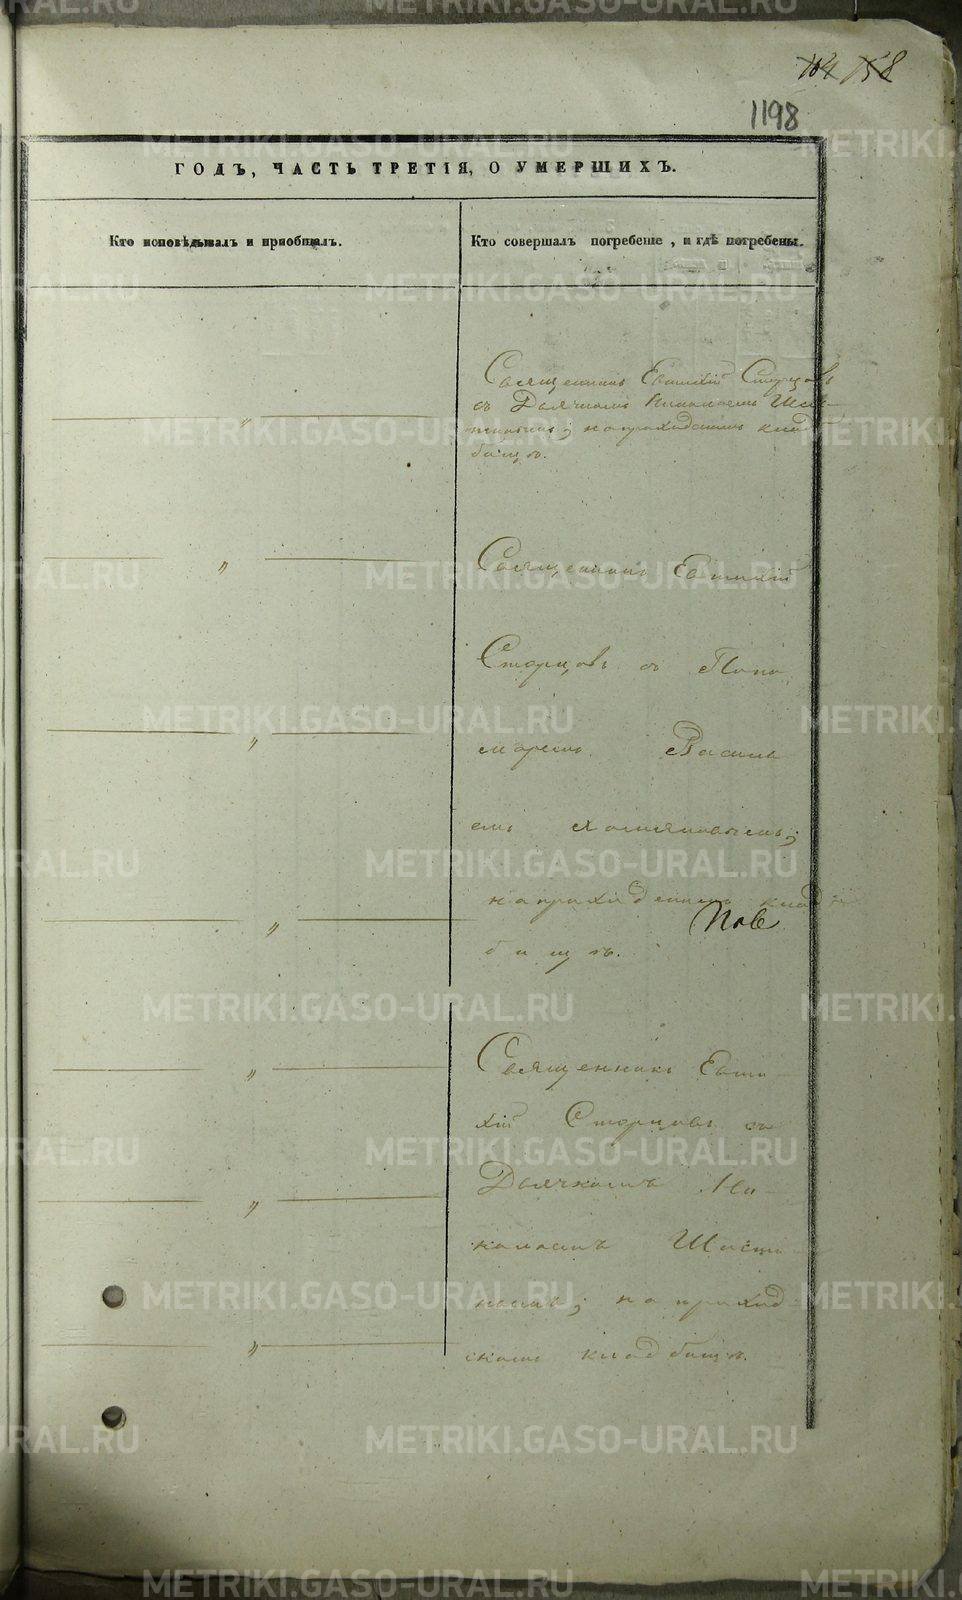 158
1198
ГОДЪ, ЧАСТЬ ТРЕТІЯ, О УМЕРШИХЪ.
Кто исповѣдывалъ и пріобщалъ.
Кто совершалъ погребеніе, и гдѣ погребены.
Священникъ Евтихій Старцовъ
съ Дьячкомъ Николаемъ
на приходскомъ клад
бищѣ.
Священникъ Евтихій
Старцовъ съ Поно
маремъ Василь
емъ
на приходскомъ клад
бищѣ.
Священникъ Евти
хій Старцовъ съ
Дьячкомъ Ни
колаемъ
на приход
скомъ кладбищѣ.
METRIKI.GASO-URAL.RU